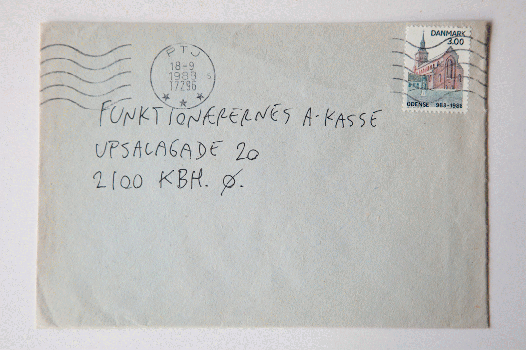 PTJ
18-9
1989 s
17296
DANMARK
3.00
ODENSE 988-1988
FUNKTIONÆRERNES A-KASSE
UPSALAGADE 20
2100 KBH. Ø.